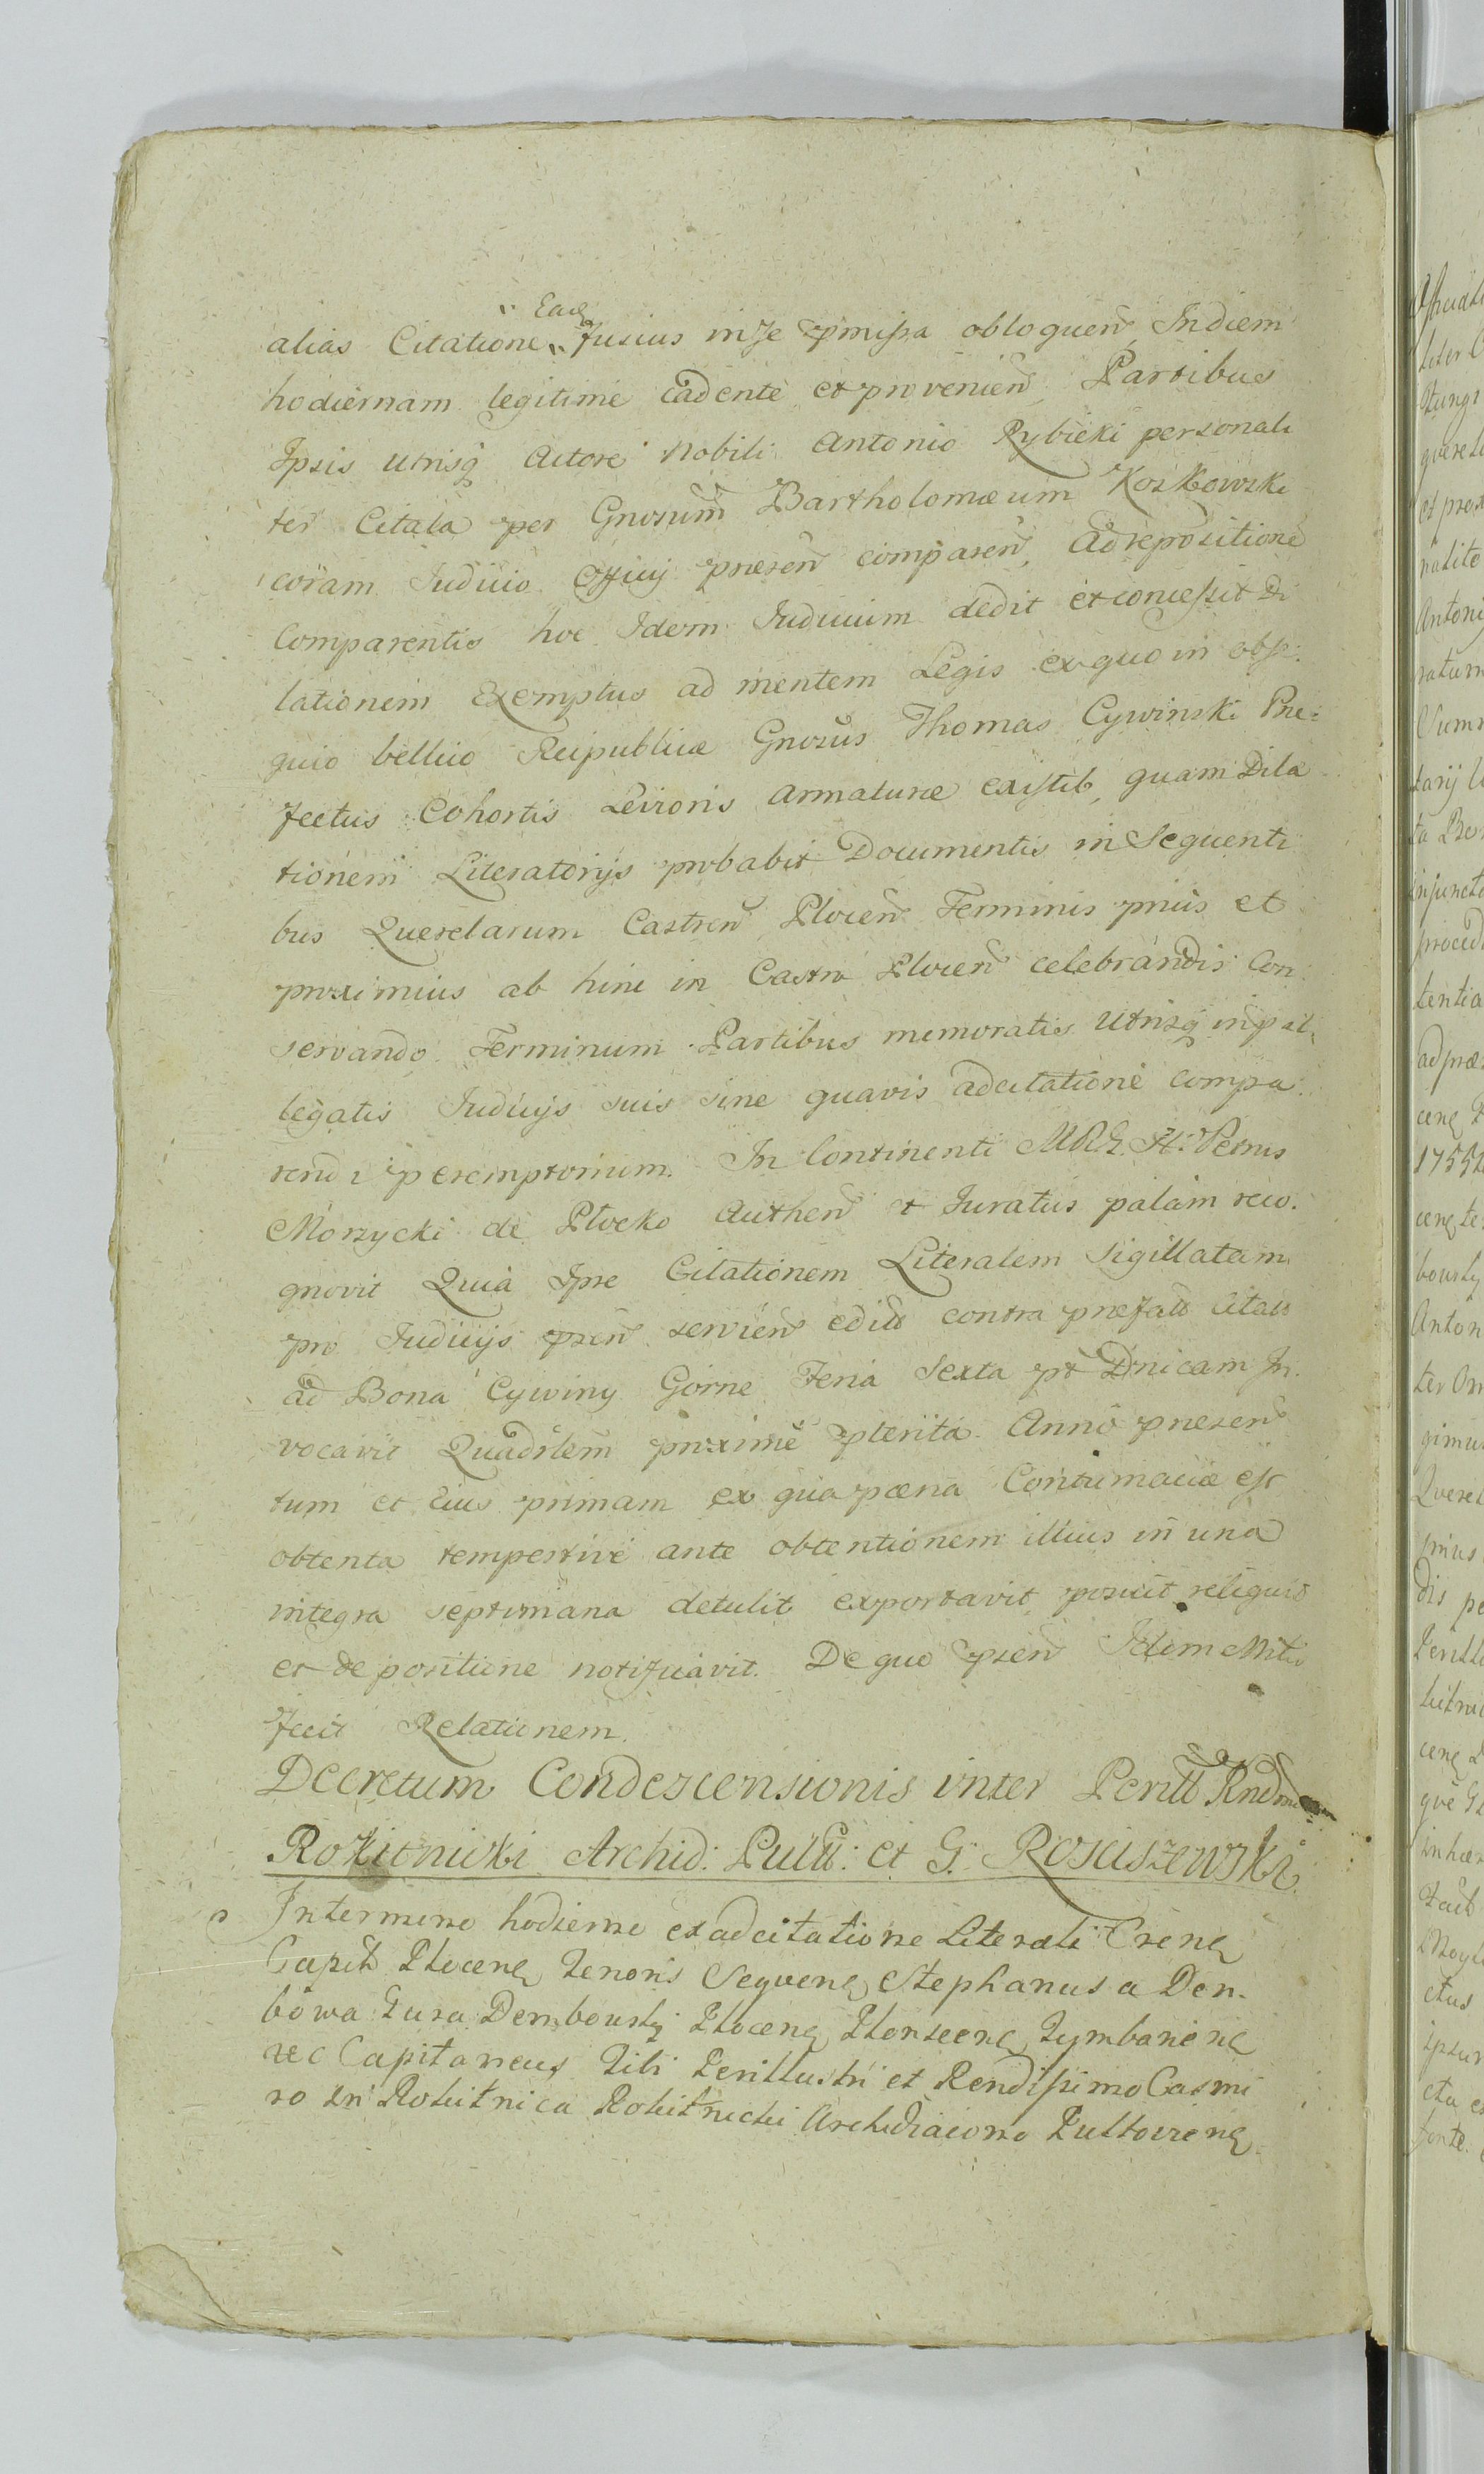 Eadẽ
alias Citatione fusius in se pmissa obloquen̄ In diem
hodiernam legitime cadente et provenien̄ Partibus
Ipsis utrisq̨ Actore Nobili Antonio Rybicki personali
ter Citata per Gnosum Bartholomæum Kozkowski
coram Judicio Officij præsen̄ comparen̄, Ad repositione
Comparentis hoc Idem Judicium dedit et concessit Di
lationem Exemptus ad mentem Legis ex quo in obse:
quio bellico Reipublicæ Gnosus Thomas Cywinski Præ:
fectus Cohortis Levioris Armaturæ existit, quam Dila
tionem Literatorijs probabit Documentis in Sequenti
bus Querelarum Castren̄ Plocen̄ Terminis prius et
proximius ab hinc in Castro Plocen̄ celebrandis Con
servando Terminum Partibus memoratis Utrisq̨
legatis Judicijs suis sine quavis adcitatione Compa
rendi peremptorium. In Continenti MRG. St. Petrus
Morzycki de Płocko Authen̄ et Juratus palam reco.
gnovit Quia Ipse Citationem Literalem Sigillatam
pro Judicijs psen̄ servien̄ edita contra præfato Citato
ad Bona Cywiny Gorne Feria Sexta pt Dnicam In.
vocavit Quadrlem proxime pterita Anno præsen̄
tum et Eius primam ex qua pæna Contumaciæ est
obtenta tempestive ante obtentionem illius in una
integra septimana detulit exportavit posuit reliquit
et de positione notificavit. De quo psen̄ Idem Mtis
fecit Relationem.
Decretum Condescensionis inter Perill Rndm
Rokitnicki Archid: Pult: et G. Rosciszewski.
In termino hodierno ex adcitatione Literali Tenen̨
Capit Plocen̨ Tenoris Seqven̨ Stephanus a Dem.
bowa Gura Dembowsky Plocen̨ Plonscen̨ Tymbarien̨
nec Capitaneus Tibi Perillustri et Rendissimo Casimi
ro in Rokitnica Rokitnicki Archidiacono Pultovien̨